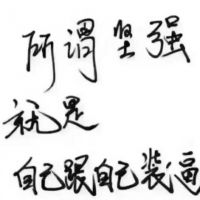 所谓坚强
就是
自己跟自己装逼